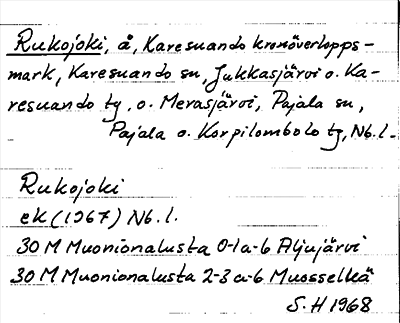 Rukojoki, å, Karesuando kronöverlopps-
mark, Karesuando sn, Jukkasjärvi o. Ka-
resuando tg, o. Merasjärvi, Pajala sn,
Pajala o. Korpilombolo tg, Nb. l.
Rukojoki
ek (1967) Nb. l.
30 M Muonionalusta 0-1 a-b Aljujärvi
30 M Muonionalusta 2-3 a-b Muosselkä
S. H 1968